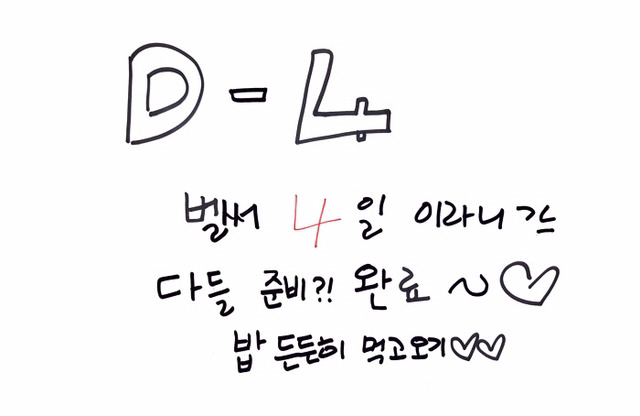 D-4
벌써 4일 이라니 ㄱㅡ
다들 준비?! 완료 ~♡
밥 든든히 먹고오기♡♡